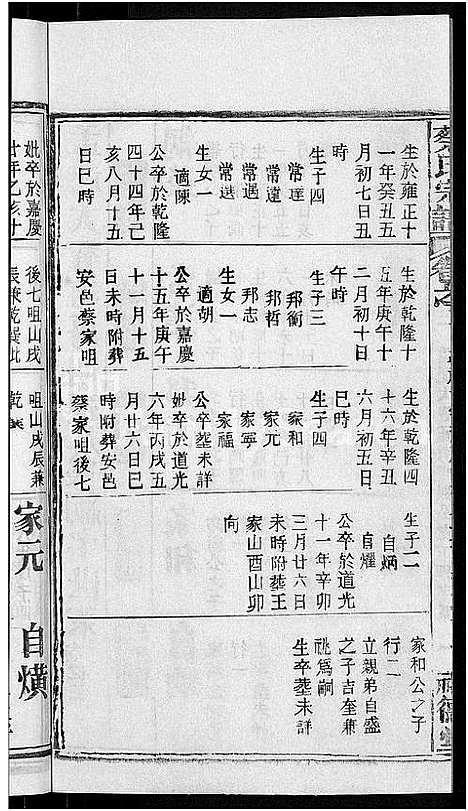 蔡氏宗譜
生於雍正十
一年癸丑五
月初七日丑
時
生子四
常達
常遠
常遇
常選
生女一
適陳
公卒於乾隆
四十四年己
亥八月十五
日巳時
生於乾隆十
五年庚午十
二月初十日
午時
生子三
邦衡
邦哲
邦志
生女一
適胡
公卒於嘉慶
十五年庚午
十一月十五
日未時附葬
安邑蔡家咀
生於乾隆四
十六年辛丑
六月初五日
巳時
生子四
家和
家元
家寧
家福
公卒塟未詳
妣卒於道光
六年丙戌五
月廿六日巳
時附葬安邑
蔡家咀後七
生子二
自炳
自燿
公卒於道光
十一年辛卯
三月廿六日
未時附塟王
家山酉山卯
向
家和公之子
行二
立親弟自盛
之子吉奎兼
祧為嗣
生卒塟未詳
妣卒於嘉慶
廿年乙亥十
後七咀山戌
辰兼乾巽此
咀山戌辰兼
乾
家元
自熿